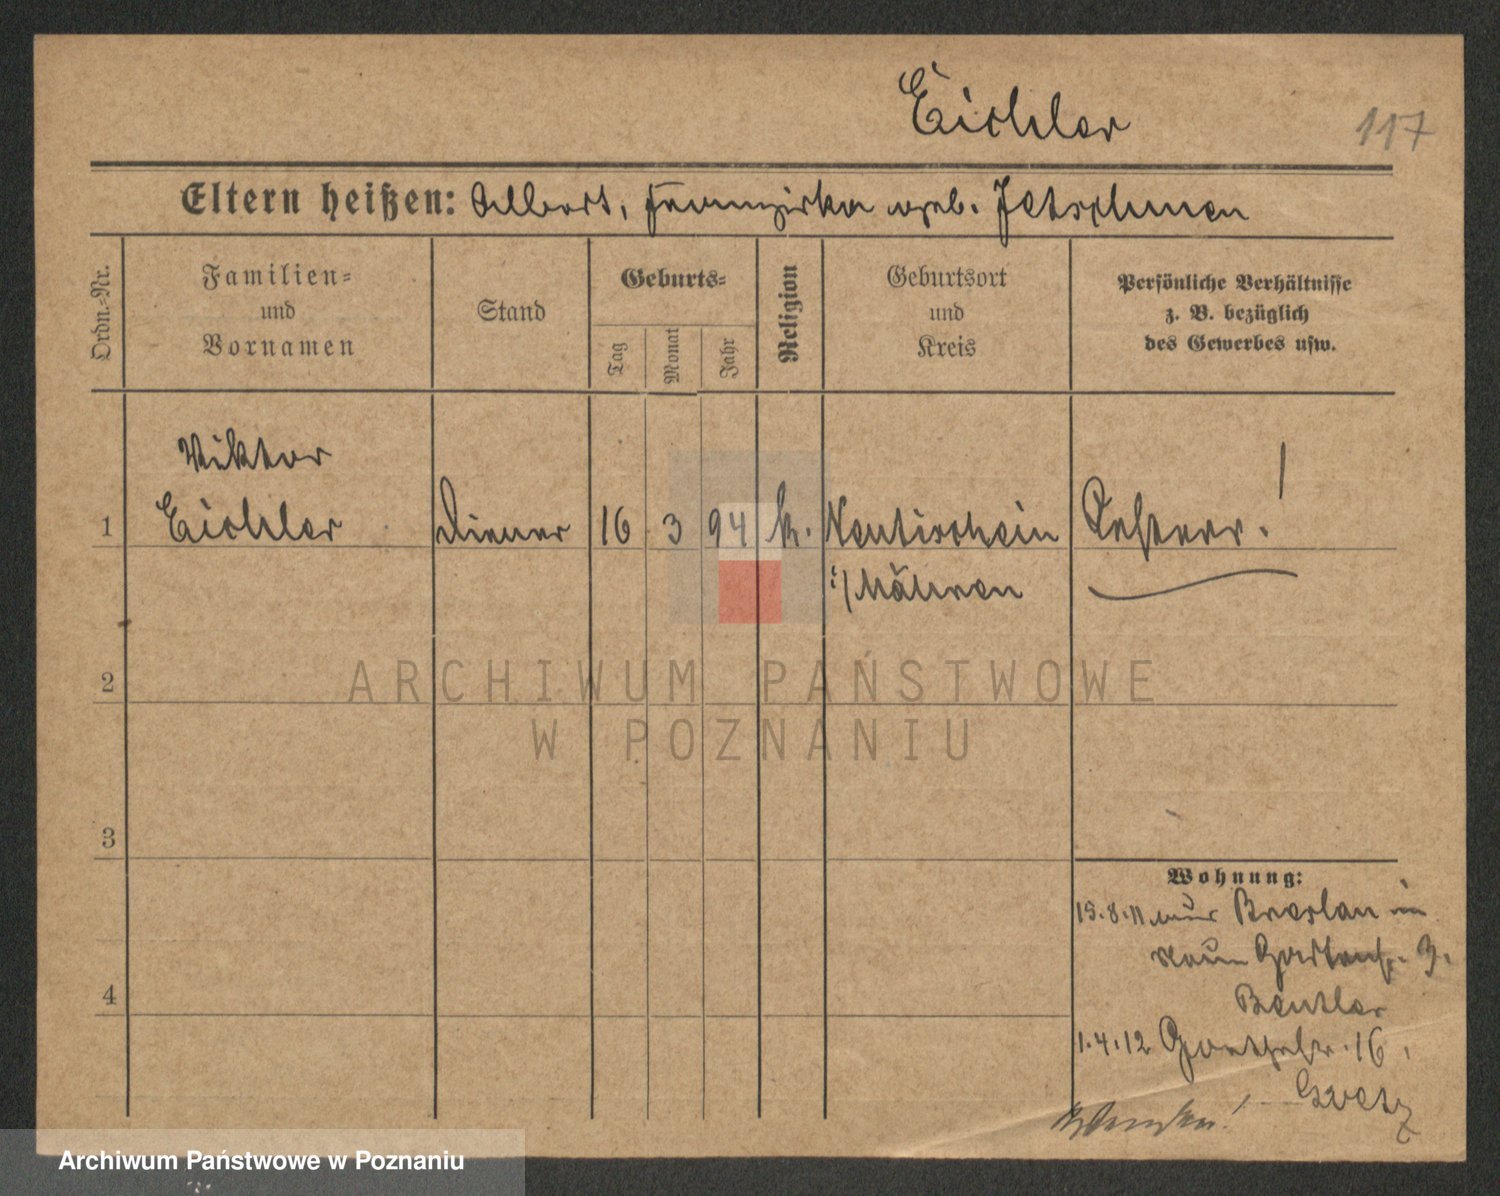 Eichler
117
Eltern heißen: Albert, Franziska geb. Jetschmen
Ordn.-Nr.
Familien-
und
Vornamen
Stand
Geburts-
Tag
Monat
Jahr
Religion
Geburtsort
und
Kreis
Persönliche Verhältnisse
z. B. bezüglich
des Gewerbes usw.
Viktor
1 Eichler Diener 16 3 94 k. Neutischein Österr.!
i/Mähren
ARCHIWUM PAŃSTWOWE
2
W POZNANIU
3
Wohnung:
15.8.11 aus Breslau in
Gartenstr. 3.
4
Beutler
1.4.12 Goethestr. 16.
Archiwum Państwowe w Poznaniu